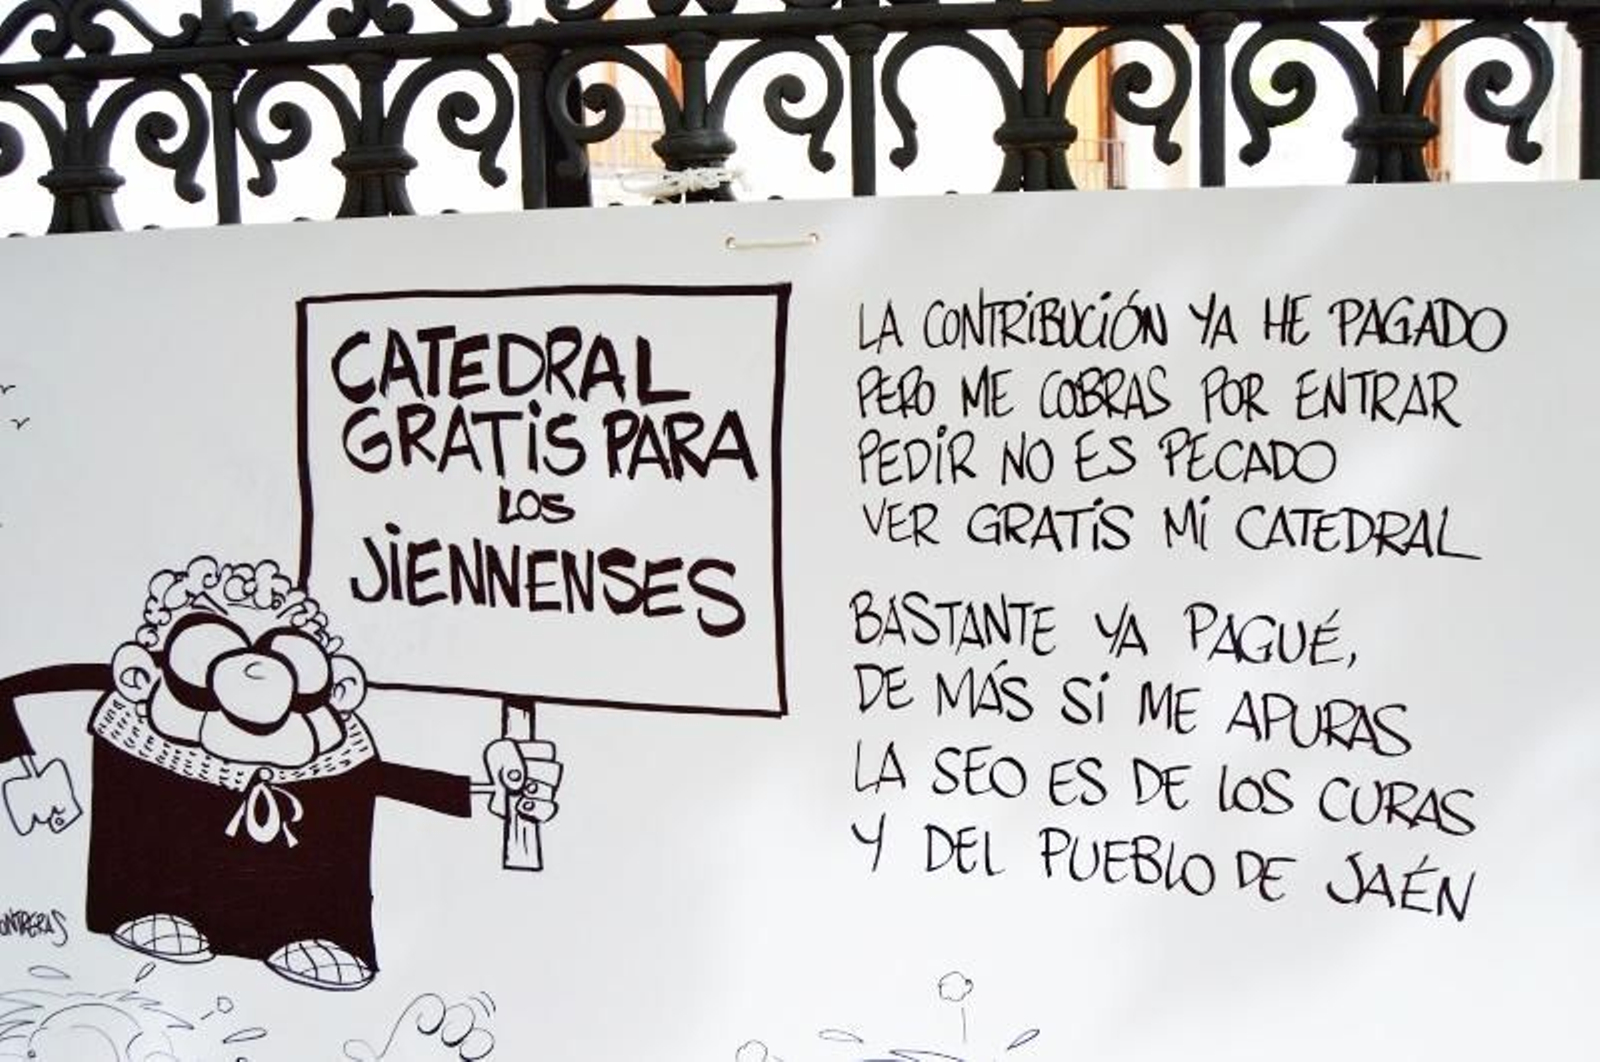 CATEDRAL
GRATIS PARA
LOS
JIENNENSES
LA CONTRIBUCIÓN YA HE PAGADO
PERO ME COBRAS POR ENTRAR
PEDIR NO ES PECADO
VER GRATIS MI CATEDRAL
BASTANTE YA PAGUÉ,
DE MÁS SI ME APURAS
LA SEO ES DE LOS CURAS
Y DEL PUEBLO DE JAÉN